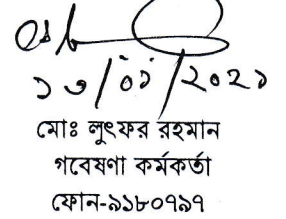 ১৩/০১/২০২১
মোঃ লুৎফর রহমান
গবেষণা কর্মকর্তা
ফোন-৯১৮০৭৯৭